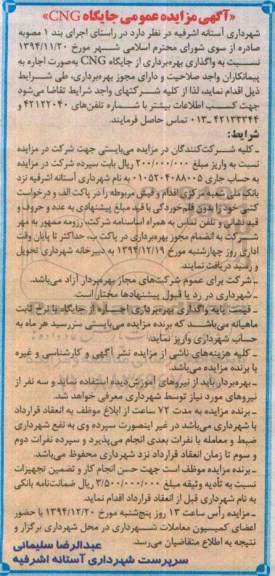 «آگهی مزایده عمومی جایگاه CNG»
شهرداری آستانه اشرفیه در نظر دارد در راستای اجرای بند ۱ مصوبه
صادره از سوی شورای محترم اسلامی شهر مورخ ۱۳۹۴/۱۱/۲۰
نسبت به واگذاری بهره‌برداری از جایگاه CNG به‌صورت اجاره به
پیمانکاران واجد صلاحیت و دارای مجوز بهره‌برداری، طی شرایط
ذیل اقدام نماید، لذا از کلیه شرکتهای واجد شرایط تقاضا می‌شود
جهت کسب اطلاعات بیشتر با شماره تلفن‌های ۴۲۱۲۲۰۴۰ و
۴۲۱۲۳۳۴۴-۰۱۳ تماس حاصل فرمایند.
شرایط:
ـ کلیه شرکت‌کنندگان در مزایده می‌بایستی جهت شرکت در مزایده
نسبت به واریز مبلغ ۲۰۰/۰۰۰/۰۰۰ ریال بابت سپرده شرکت در مزایده
به حساب جاری ۰۱۰۵۲۰۴۰۸۸۰۰۵ به نام شهرداری آستانه اشرفیه نزد
بانک ملی شعبه مرکزی اقدام و فیش مربوطه را در پاکت الف و درخواست
کتبی خود را بدون قلم‌خوردگی با قید مبلغ پیشنهادی به عدد و حروف و
قید نشانی و تلفن تماس به همراه اساسنامه شرکت، رزومه ممهور به مهر
شرکت به انضمام مجوز بهره‌برداری در پاکت ب، حداکثر تا پایان وقت
اداری روز چهارشنبه مورخ ۱۳۹۴/۱۲/۱۹ به دبیرخانه شهرداری تحویل
و رسید دریافت نمایند.
ـ شرکت برای عموم شرکت‌های مجاز بهره‌بردار آزاد می‌باشد.
ـ شهرداری در رد یا قبول پیشنهادها مختار است.
ـ قیمت پایه واگذاری بهره‌برداری اجاره از جایگاه با نرخ ثابت
ماهیانه می‌باشد که برنده مزایده می‌بایستی سررسید هر ماه به
حساب شهرداری واریز نماید.
ـ کلیه هزینه‌های ناشی از مزایده نشر آگهی و کارشناسی و غیره
با برنده مزایده می‌باشد.
ـ بهره‌بردار باید از نیروهای آموزش‌دیده استفاده نماید و سه نفر از
نیروهای مورد نیاز توسط شهرداری معرفی خواهد شد.
ـ برنده مزایده به مدت ۷۲ ساعت از ابلاغ موظف به انعقاد قرارداد
با شهرداری می‌باشد در غیر اینصورت سپرده وی به نفع شهرداری
ضبط و معامله با نفرات بعدی انجام می‌پذیرد و سپرده نفرات دوم
و سوم تا زمان انعقاد قرارداد نزد شهرداری محفوظ می‌باشد.
ـ برنده مزایده موظف است جهت حسن انجام کار و تضمین تجهیزات
نسبت به تأدیه وثیقه مبلغ ۳/۵۰۰/۰۰۰/۰۰۰ ریال ضمانت‌نامه بانکی
به نام شهرداری قبل از انعقاد قرارداد اقدام نماید.
ـ مزایده رأس ساعت ۱۳ روز پنج‌شنبه مورخ ۱۳۹۴/۱۲/۲۰ با حضور
اعضای کمیسیون معاملات شهرداری در محل شهرداری برگزار و
نتیجه به اطلاع متقاضیان می‌رسد.
عبدالرضا سلیمانی
سرپرست شهرداری آستانه اشرفیه